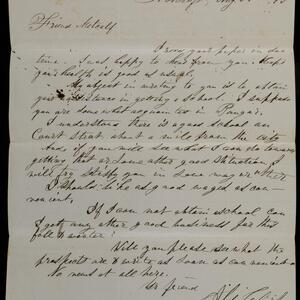 Friend Metcalf
I rec'd your paper in due
time. I was happy to hear from you. I hope
your health is good as usual.
My object in writing to you is to obtain
your assistance in getting a School. I suppose
you are somewhat acquainted in Bangor.
I understand there is a good school on
Court Street about a mile from the city
And if you will see what I can do towards
getting that or some other good situation I
will pay you in some way or other
I should like as good wages as con-
venient.
If I can not obtain school can
I get any other good business for this
fall & winter?
Will you please see what the
prospects are & write as soon as convenient
No news at all here.
Your friend